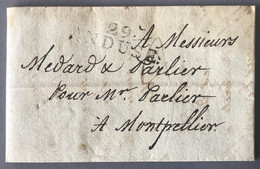 29
ANDUSE
A Messieurs
Medard & Parlier
Pour Mr. Parlier
A Montpellier.